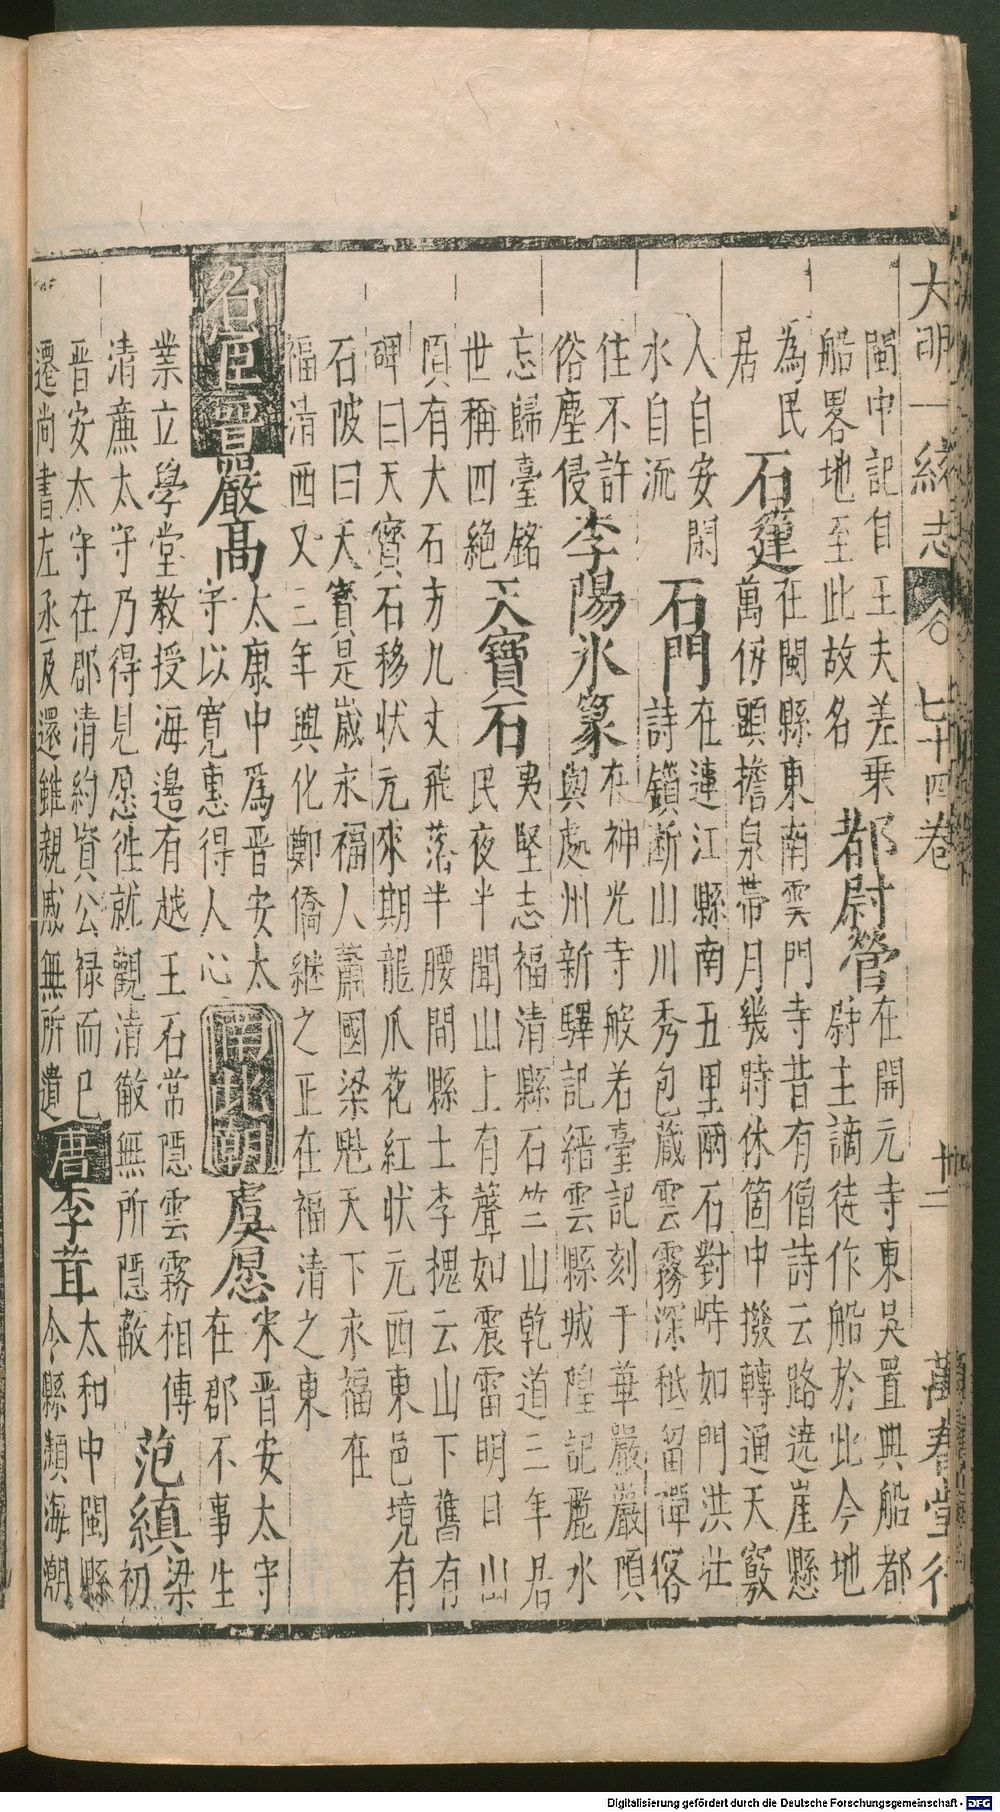 大明一統志 卷 七十四卷 十二 萬春堂行
閩中記自王夫差乗
船畧地至此故名
都尉營
在開元寺東吳置典船都
尉主謫徒作船於此今地
為民
居
石䕠
在閩縣東南雲門寺昔有僧詩云路遶崖懸
萬仞頭擔泉帶月幾時休箇中撥轉通天竅
人自安閑
水自流
石門
在連江縣南五里兩石對峙如門洪壯
詩鎖断山川秀包蔵雲霧深秪留禪客
住不許
俗塵侵
李陽氷篆
在神光寺般若臺記刻于華嚴巖頂
與處州新驛記縉雲縣城隍記麗水
忘歸臺銘
世稱四絶
天寶石
夷堅志福清縣石竺山乾道三年居
民夜半聞山上有聲如震雷明日山
頂有大石方九丈飛落半腰間縣士李槐云山下舊有
碑曰天寳石移状元來期龍爪花紅状元西東邑境有
石陂曰天寶是歳永福人蕭國梁魁天下永福在
福清西又三年興化鄭僑継之正在福清之東
名臣
晋
嚴高
太康中爲晋安太
守以寛惠得人心
南北朝
虞愿
宋晋安太守
在郡不事生
業立學堂教授海邉有越王石常隠雲霧相傳
清廉太守乃得見愿徃就觀清徹無所隠蔽
范縝
梁
初
晋安太守在郡清約資公禄而已
遷尚書左丞及還雖親戚無所遺
唐
李茸
太和中閩縣
令縣瀕海潮
Digitalisierung gefördert durch die Deutsche Forschungsgemeinschaft - DFG